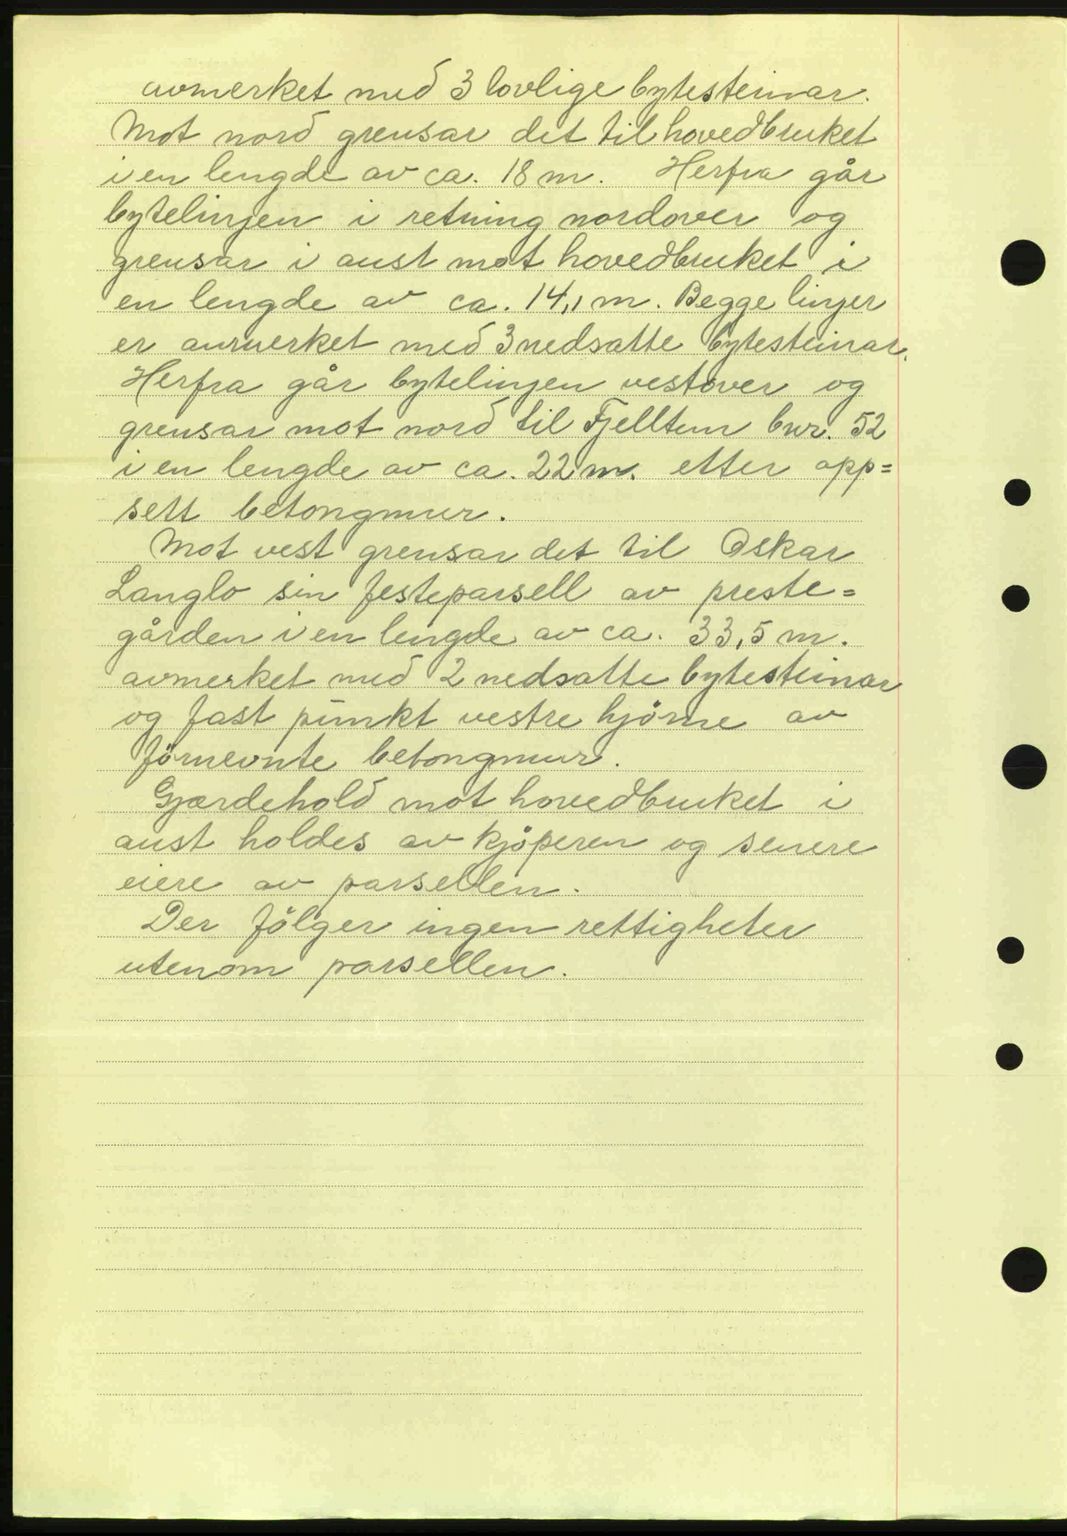 avmerket med 3 lovlige bytesteinar.
Mot nord grensar det til hovedbruket
i en lengde av ca. 18 m. Herfra går
bytelinjen i retning nordover og
grensar i aust mot hovedbruket i
en lengde av ca. 14,1 m. Begge linjer
er avmerket med 3 nedsatte bytesteinar.
Herfra går bytelinjen vestover og
grensar mot nord til Fjelltun bnr. 52
i en lengde av ca. 22 m. etter opp=
sett betongmur.
Mot vest grensar det til Oskar
Langlo sin festeparsell av preste=
gården i en lengde av ca. 33,5 m.
avmerket med 2 nedsatte bytesteinar
og fast punkt vestre hjörne av
förnevnte betongmur.
Gjærdehold mot hovedbruket i
aust holdes av kjöperen og senere
eiere av parsellen.
Der fölger ingen rettigheter
utenom parsellen.